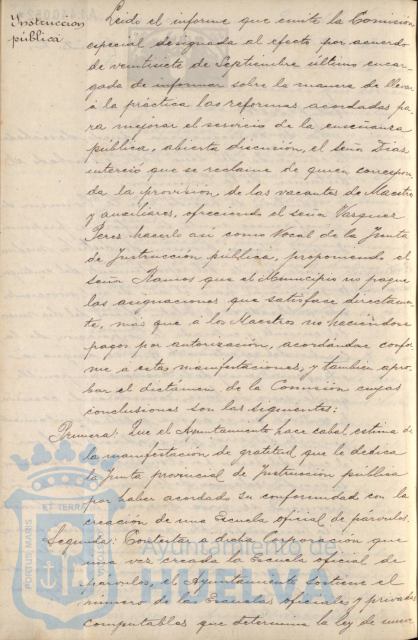 Instrucción
pública
Leido el informe que emite la Comision
especial designada al efecto por acuerdo
de veintisiete de Septiembre último encar-
gada de informar sobre la manera de llevar
á la práctica las reformas acordadas pa-
ra mejorar el servicio de la enseñanza
pública, abierta discusion, el señor Dias
interesó que se reclame de quien correspon-
da la provisión, de las vacantes de Maestro
y auxiliares, ofreciendo el señor Vazquez
Perez hacerlo asi como Vocal de la Junta
de Instruccion pública, proponiendo el
señor Ramos que el Municipio no pague
las asignaciones que satisface directamen-
te, más que á los Maestros no haciéndose
pagos por autorización, acordándose confor-
me a estas manifestaciones, y tambien apro-
bar el dictámen de la Comisión cuyas
conclusiones son las siguientes:
Primera: Que el Ayuntamiento hace cabal estima de
la manifestacion de gratitud que le dedica
la Junta provincial de Instrucción pública
por haber acordado su conformidad con la
creación de una Escuela oficial de párvulos
Segunda: Contestar a dicha corporación que
una vez creada la Escuela oficial de
párvulos, el Ayuntamiento sostiene el
número de las Escuelas oficiales y privadas
computables que determina la ley de nueve
PORTUS MARIS
ET TERRÆ
Ayuntamiento de
HUELVA